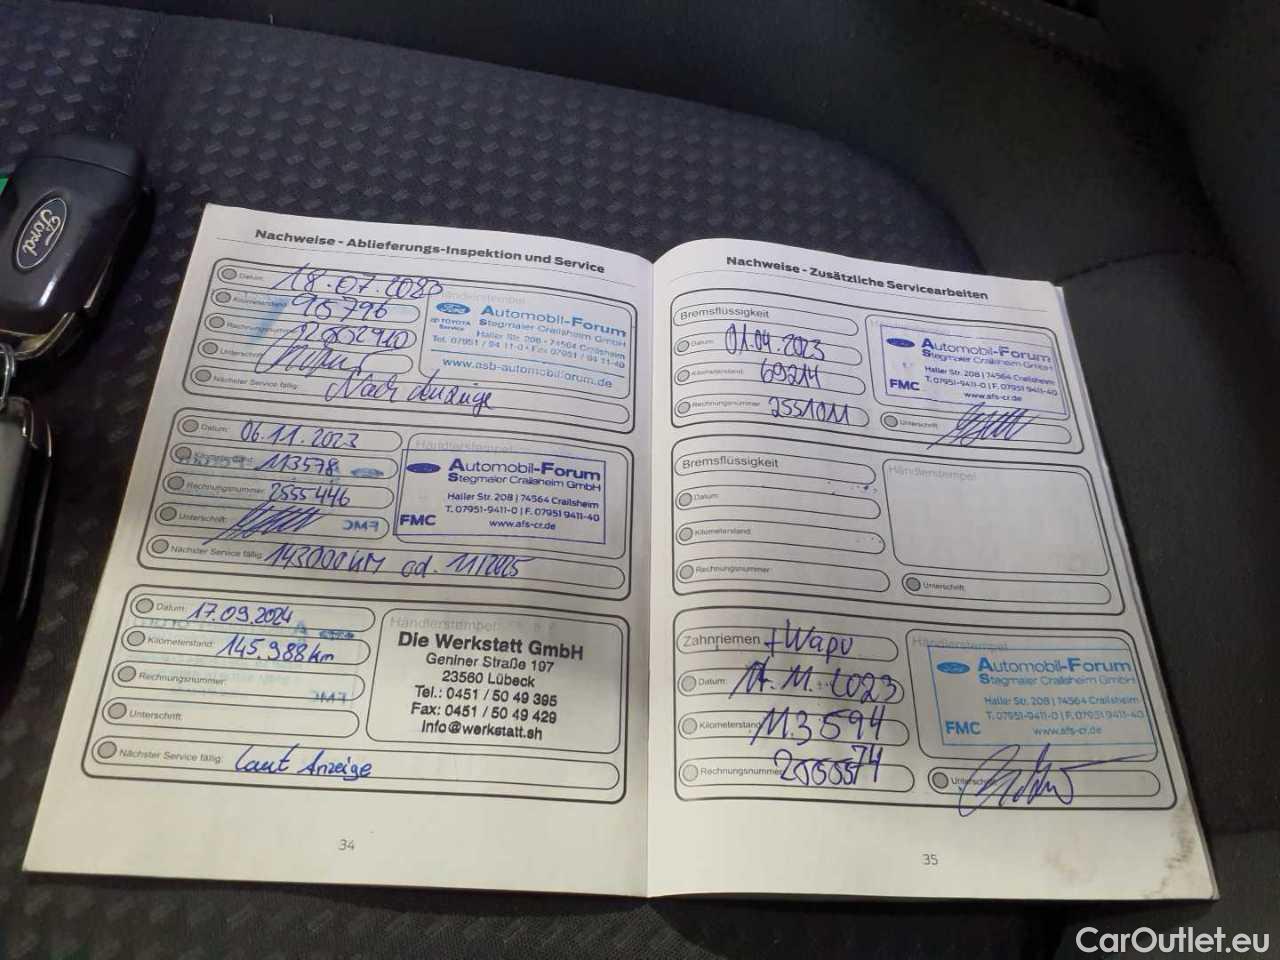 Ford
Nachweise - Ablieferungs-Inspektion und Service
Datum: 18.07.2020
Kilometerstand: 95796
Rechnungsnummer: 2552920
Unterschrift:
Nächster Service fällig: Nach Anzeige
Händlerstempel
Ford Automobil-Forum
TOYOTA Service Stegmaier Crailsheim GmbH
Haller Str. 208 - 74564 Crailsheim
Tel. 07951 / 94 11-0 • Fax 07951 / 94 11-40
www.asb-automobilforum.de
Datum: 06.11.2023
Kilometerstand: 113578
Rechnungsnummer: 2555446
Unterschrift:
Nächster Service fällig: 143000 KM od. 11/2025
Händlerstempel
Automobil-Forum
Stegmaier Crailsheim GmbH
Haller Str. 208 | 74564 Crailsheim
T. 07951-9411-0 | F. 07951 9411-40
FMC www.afs-cr.de
Datum: 17.09.2024
Kilometerstand: 145.988km
Rechnungsnummer:
Unterschrift:
Nächster Service fällig: laut Anzeige
Händlerstempel:
Die Werkstatt GmbH
Geniner Straße 197
23560 Lübeck
Tel.: 0451 / 50 49 395
Fax: 0451 / 50 49 429
info@werkstatt.sh
34
Nachweise - Zusätzliche Servicearbeiten
Bremsflüssigkeit
Datum: 01.04.2023
Kilometerstand: 69214
Rechnungsnummer: 2551011
Automobil-Forum
Stegmaier Crailsheim GmbH
Haller Str. 208 | 74564 Crailsheim
T. 07951-9411-0 | F. 07951 9411-40
FMC www.afs-cr.de
Unterschrift:
Bremsflüssigkeit
Datum:
Kilometerstand:
Rechnungsnummer:
Händlerstempel
Unterschrift:
Zahnriemen + Wapu
Datum: 14.11.2023
Kilometerstand: 113594
Rechnungsnummer: 2555574
Händlerstempel
Automobil-Forum
Stegmaier Crailsheim GmbH
Haller Str. 208 | 74564 Crailsheim
T. 07951-9411-0 | F. 07951 9411-40
FMC www.afs-cr.de
Unterschrift:
35
CarOutlet.eu